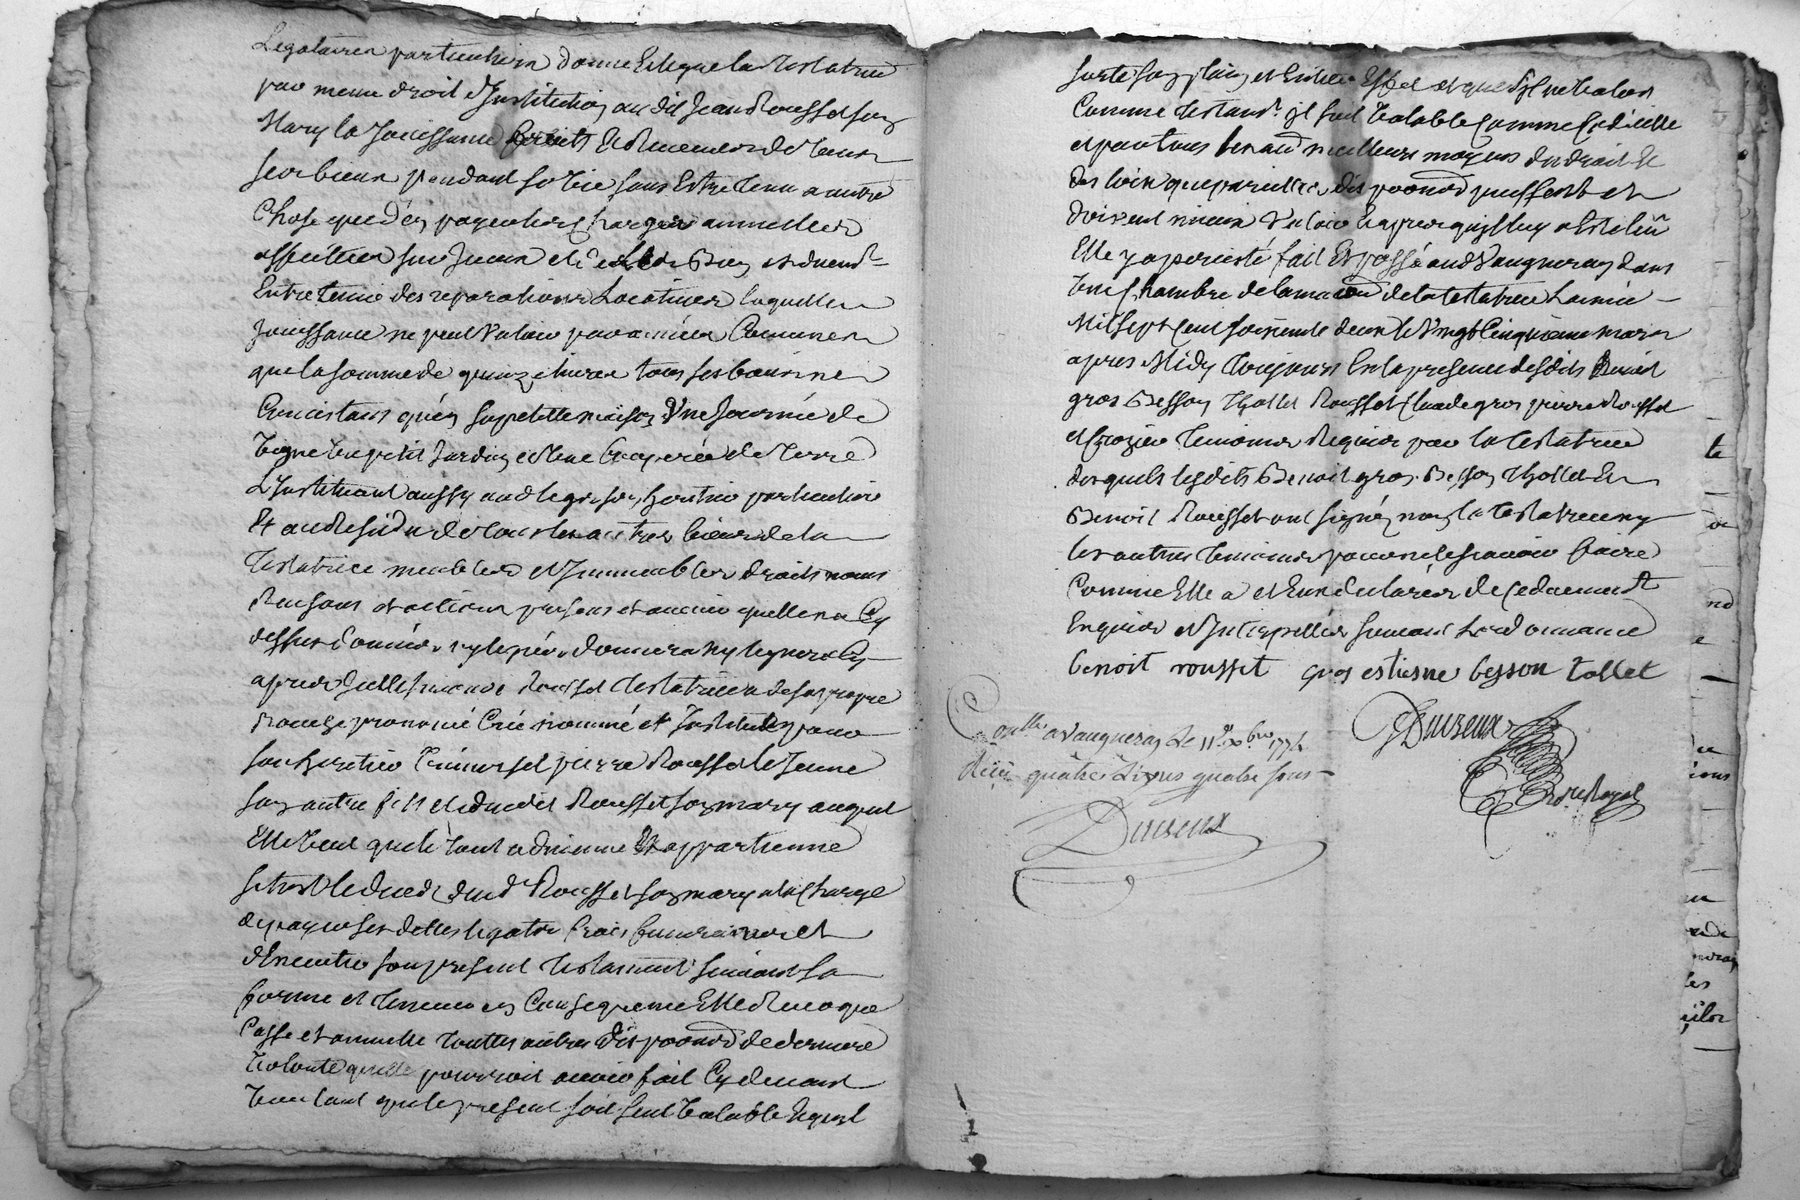 Legataires particuliers donne Et legue la Testatrice
par meme droit d'Institution au dit Jean Rousset son
Mary la Jouissance fruits Et Revenus de tous
ses biens pendant sa Vie sans Estre tenu a autre
Chose que d'en payer les charges annuelles
affectées sur Iceux et d'
Entretenir des reparations Locatives laquelle
Jouissance ne peut Valoir par années Communes
que la somme de quinze livres tous ses biens ne
Consistans qu'en sa petite maison Une Journée de
Vigne Un petit Jardin et Une Couperée de Terre
L'Instituant aussy aud legs son heritier particulier
Et au Residu de tous les autres biens de la
Testatrice meubles et Immeubles droits noms
Raisons et actions presens et avenir quelle n'a Cy
dessus donnés ny legués donnera ny leguera Cy
apres Rousset Testatrice a de sa propre
Bouche prononcé Créé nommé et Institué pour
son heritier Universel pierre Rousset le Jeune
son autre fils et dudit Rousset son mary auquel
Elle Veut que le tout advienne Et appartienne
sitost le deceds dud Rousset son mary a la Charge
de payer ses dettes legats frais funeraires et
d'Executer son present testament suivant sa
forme et teneur en Consequence Elle Revoque
Casse et annulle touttes autres dispoõns de derniere
Volonté quelle pourroit avoir fait Cy devant
Voulant que le present soit seul Valable Et quil
sorte son plain et Entier Effet et que s'il ne Valoit
Comme testamt il soit Valable Comme Codicille
et par tous les aud meilleurs moyens du droit Et
des loix que pareilles dispoõns puissent et
doivent mieux Valoir Et apres quil luy a Esté lû
Elle y a persisté fait Et passé aud Vaugneray dans
Une Chambre de la maison de la testatrice L'année
Mil sept cent soixente deux le Vingt Cinquieme mars
apres Midy toujours En la presence desdits Benoit
gros Besson Thollet Rousset Claude gros pierre Rousset
et Crozier temoins Requis par la testatrice
desquels lesdits Benoit gros Besson Thollet Et
Benoit Rousset ont signé non la testatrice ny
les autres temoins pour ne le scavoir faire
Comme Elle a et Eux declarés de Ce duement
Enquise et Interpellés suivant L'ordonnance
benoit rousset gros estiesne besson tollet
Conllé a Vaugneray le 11 Xbre 177
Reçu quatre Livres quatre sous